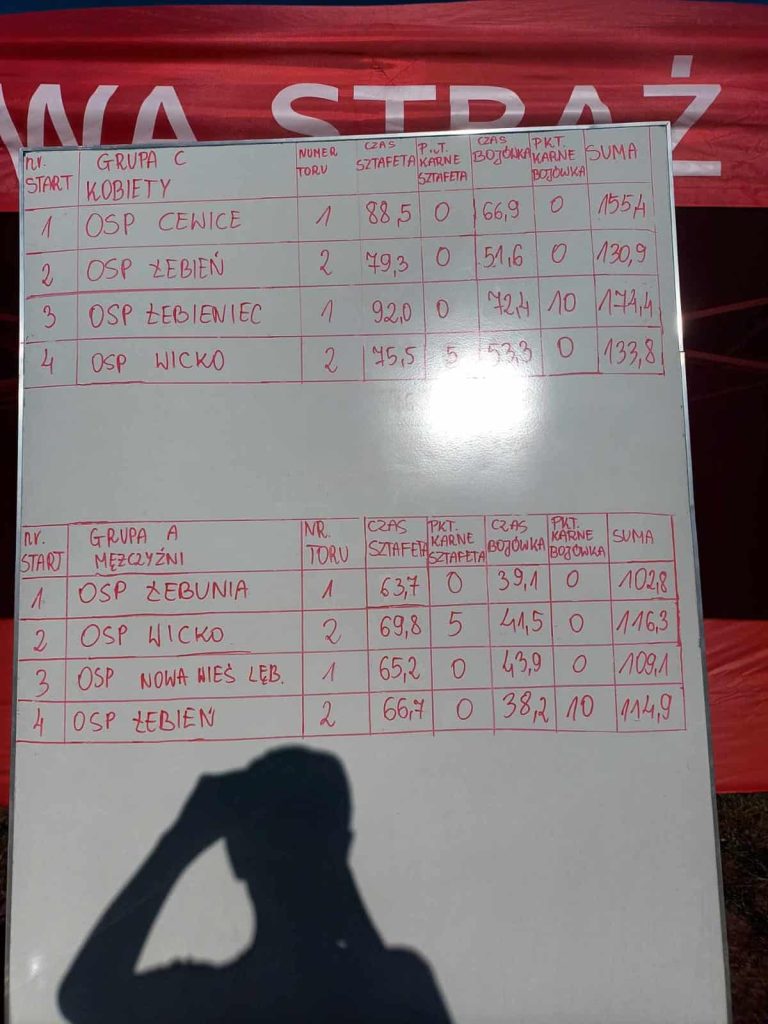 WA STRAŻ
nr. START GRUPA C KOBIETY NUMER TORU CZAS SZTAFETA P.T. KARNE SZTAFETA CZAS BOJÓWKA PKT. KARNE BOJÓWKA SUMA
1 OSP CEWICE 1 88,5 0 66,9 0 155,4
2 OSP ŁEBIEŃ 2 79,3 0 51,6 0 130,9
3 OSP ŁEBIENIEC 1 92,0 0 72,4 10 174,4
4 OSP WICKO 2 75,5 5 53,3 0 133,8
nr. START GRUPA A MĘŻCZYŹNI NR. TORU CZAS SZTAFETA PKT. KARNE SZTAFETA CZAS BOJÓWKA PKT. KARNE BOJÓWKA SUMA
1 OSP ŁEBUNIA 1 63,7 0 39,1 0 102,8
2 OSP WICKO 2 69,8 5 41,5 0 116,3
3 OSP NOWA WIEŚ LĘB. 1 65,2 0 43,9 0 109,1
4 OSP ŁEBIEŃ 2 66,7 0 38,2 10 114,9